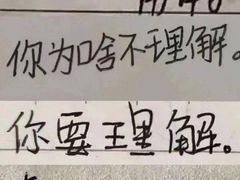 你为啥不理解。
你要理解。